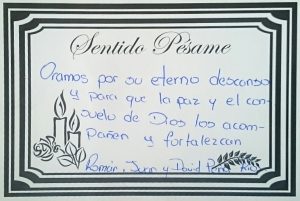 Sentido Pésame
Oramos por su eterno descanso
y para que la paz y el con-
suelo de Dios los acom-
pañen y fortalezcan
Román, Juan y David Peña